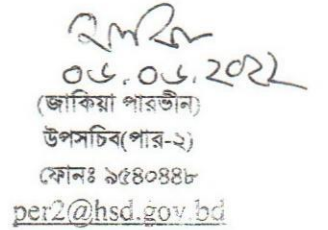 ০৬.০৬.২০২২
(জাকিয়া পারভীন)
উপসচিব(পার-২)
ফোনঃ ৯৫৪০৪৪৮
per2@hsd.gov.bd